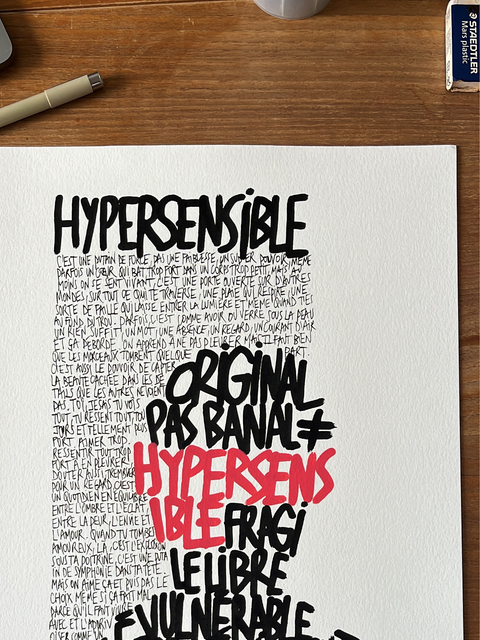 STAEDTLER
Mars plastic
HYPERSENSiBLE
C'EST UNE PUTAIN DE FORCE, PAS UNE FAIBLESSE, UN SUPER POUVOIR, MÊME
PARFOIS UN CŒUR QUI BAT TROP FORT DANS UN CORPS TROP PETIT, MAIS AU
MOINS ON SE SENT VIVANT, C'EST UNE PORTE OUVERTE SUR D'AUTRES
MONDES, SURTOUT CE QUI TE TRAVERSE, UNE PLAIE QUI RESPIRE, UNE
SORTE DE FAILLE QUI LAISSE ENTRER LA LUMIÈRE ET MÊME QUAND T'ES
AU FOND DU TROU. PARFOIS, C'EST COMME AVOIR DU VERRE SOUS LA PEAU
UN RIEN SUFFIT, UN MOT, UNE ABSENCE, UN REGARD, UN COURANT D'AIR
ET ÇA DÉBORDE. ON APPREND À NE PAS PLEURER MAIS IL FAUT BIEN
QUE LES MORCEAUX TOMBENT QUELQUE PART.
C'EST AUSSI LE POUVOIR DE CAPTER
LA BEAUTÉ CACHÉE DANS LES DÉ
TAILS QUE LES AUTRES NE VOIENT
PAS. TOI, JE SAIS TU VOIS
TOUT, TU RESSENT TOUT, TOU
JOURS ET TELLEMENT PLUS
FORT. AIMER TROP.
RESSENTIR TOUT TROP
FORT À EN PLEURER,
DOUTER AUSSI, TREMBLER
POUR UN REGARD. C'EST
UN QUOTIDIEN EN ÉQUILIBRE
ENTRE L'OMBRE ET L'ÉCLAT,
ENTRE LA PEUR, L'ENVIE ET
L'AMOUR. QUAND TU TOMBES
AMOUREUX, LÀ, C'EST L'EXPLOSION
SOUS TA POITRINE, C'EST UNE PUTA
IN DE SYMPHONIE DANS TA TÊTE.
MAIS ON AIME ÇA ET PUIS PAS LE
CHOIX MÊME SI ÇA FAIT MAL
PARCE QU'IL FAUT VIVRE
AVEC ET L'APPRIV
OISER COMME UN
ORiGiNAL
PAS BANAL≠
HYPERSENS
iBLE FRAGi
LE LiBRE
VULNÉRABLE